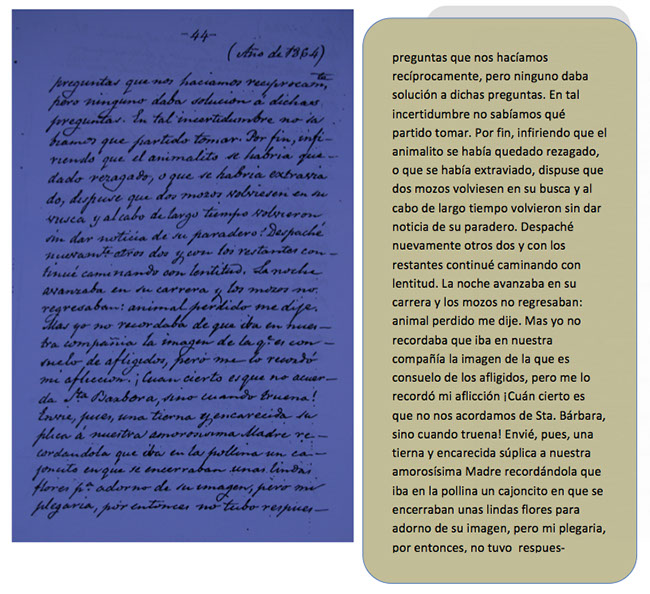 -44-
(Año de 1864)
preguntas que nos haciamos reciprocamte,
pero ninguno daba solucion á dichas
preguntas. En tal incertidumbre no sa
biamos que partido tomar. Por fin, infi-
riendo que el animalito se habria que-
dado rezagado, o que se habria extravia
do, dispuse que dos mozos volviesen en su
vusca y al cabo de largo tiempo volvieron
sin dar noticia de su paradero! Despaché
nuevamte otros dos y con los restantes con-
tinué caminando con lentitud. La noche
avanzaba en su carrera y los mozos no
regresaban: animal perdido me dije.
Mas yo no recordaba de que iba en nues-
tra compañia la imagen de la qe es con-
suelo de afligidos, peró me lo recordó
mi afliccion. ¡Cuan cierto es que no acuer-
da Sta Barbora, sino cuando truena!
Envie, pues, una tierna y encarecida su
plica á nuestra amorosisima Madre re-
cordandola que iba en la pollina un ca-
joncito en que se encerraban unas lindas
flores pa adorno de su imagen, pero mi
plegaria, por entonces no tubo respues-
preguntas que nos hacíamos
recíprocamente, pero ninguno daba
solución a dichas preguntas. En tal
incertidumbre no sabíamos qué
partido tomar. Por fin, infiriendo que el
animalito se había quedado rezagado,
o que se había extraviado, dispuse que
dos mozos volviesen en su busca y al
cabo de largo tiempo volvieron sin dar
noticia de su paradero. Despaché
nuevamente otros dos y con los
restantes continué caminando con
lentitud. La noche avanzaba en su
carrera y los mozos no regresaban:
animal perdido me dije. Mas yo no
recordaba que iba en nuestra
compañía la imagen de la que es
consuelo de los afligidos, pero me lo
recordó mi aflicción ¡Cuán cierto es
que no nos acordamos de Sta. Bárbara,
sino cuando truena! Envié, pues, una
tierna y encarecida súplica a nuestra
amorosísima Madre recordándola que
iba en la pollina un cajoncito en que se
encerraban unas lindas flores para
adorno de su imagen, pero mi plegaria,
por entonces, no tuvo respues-